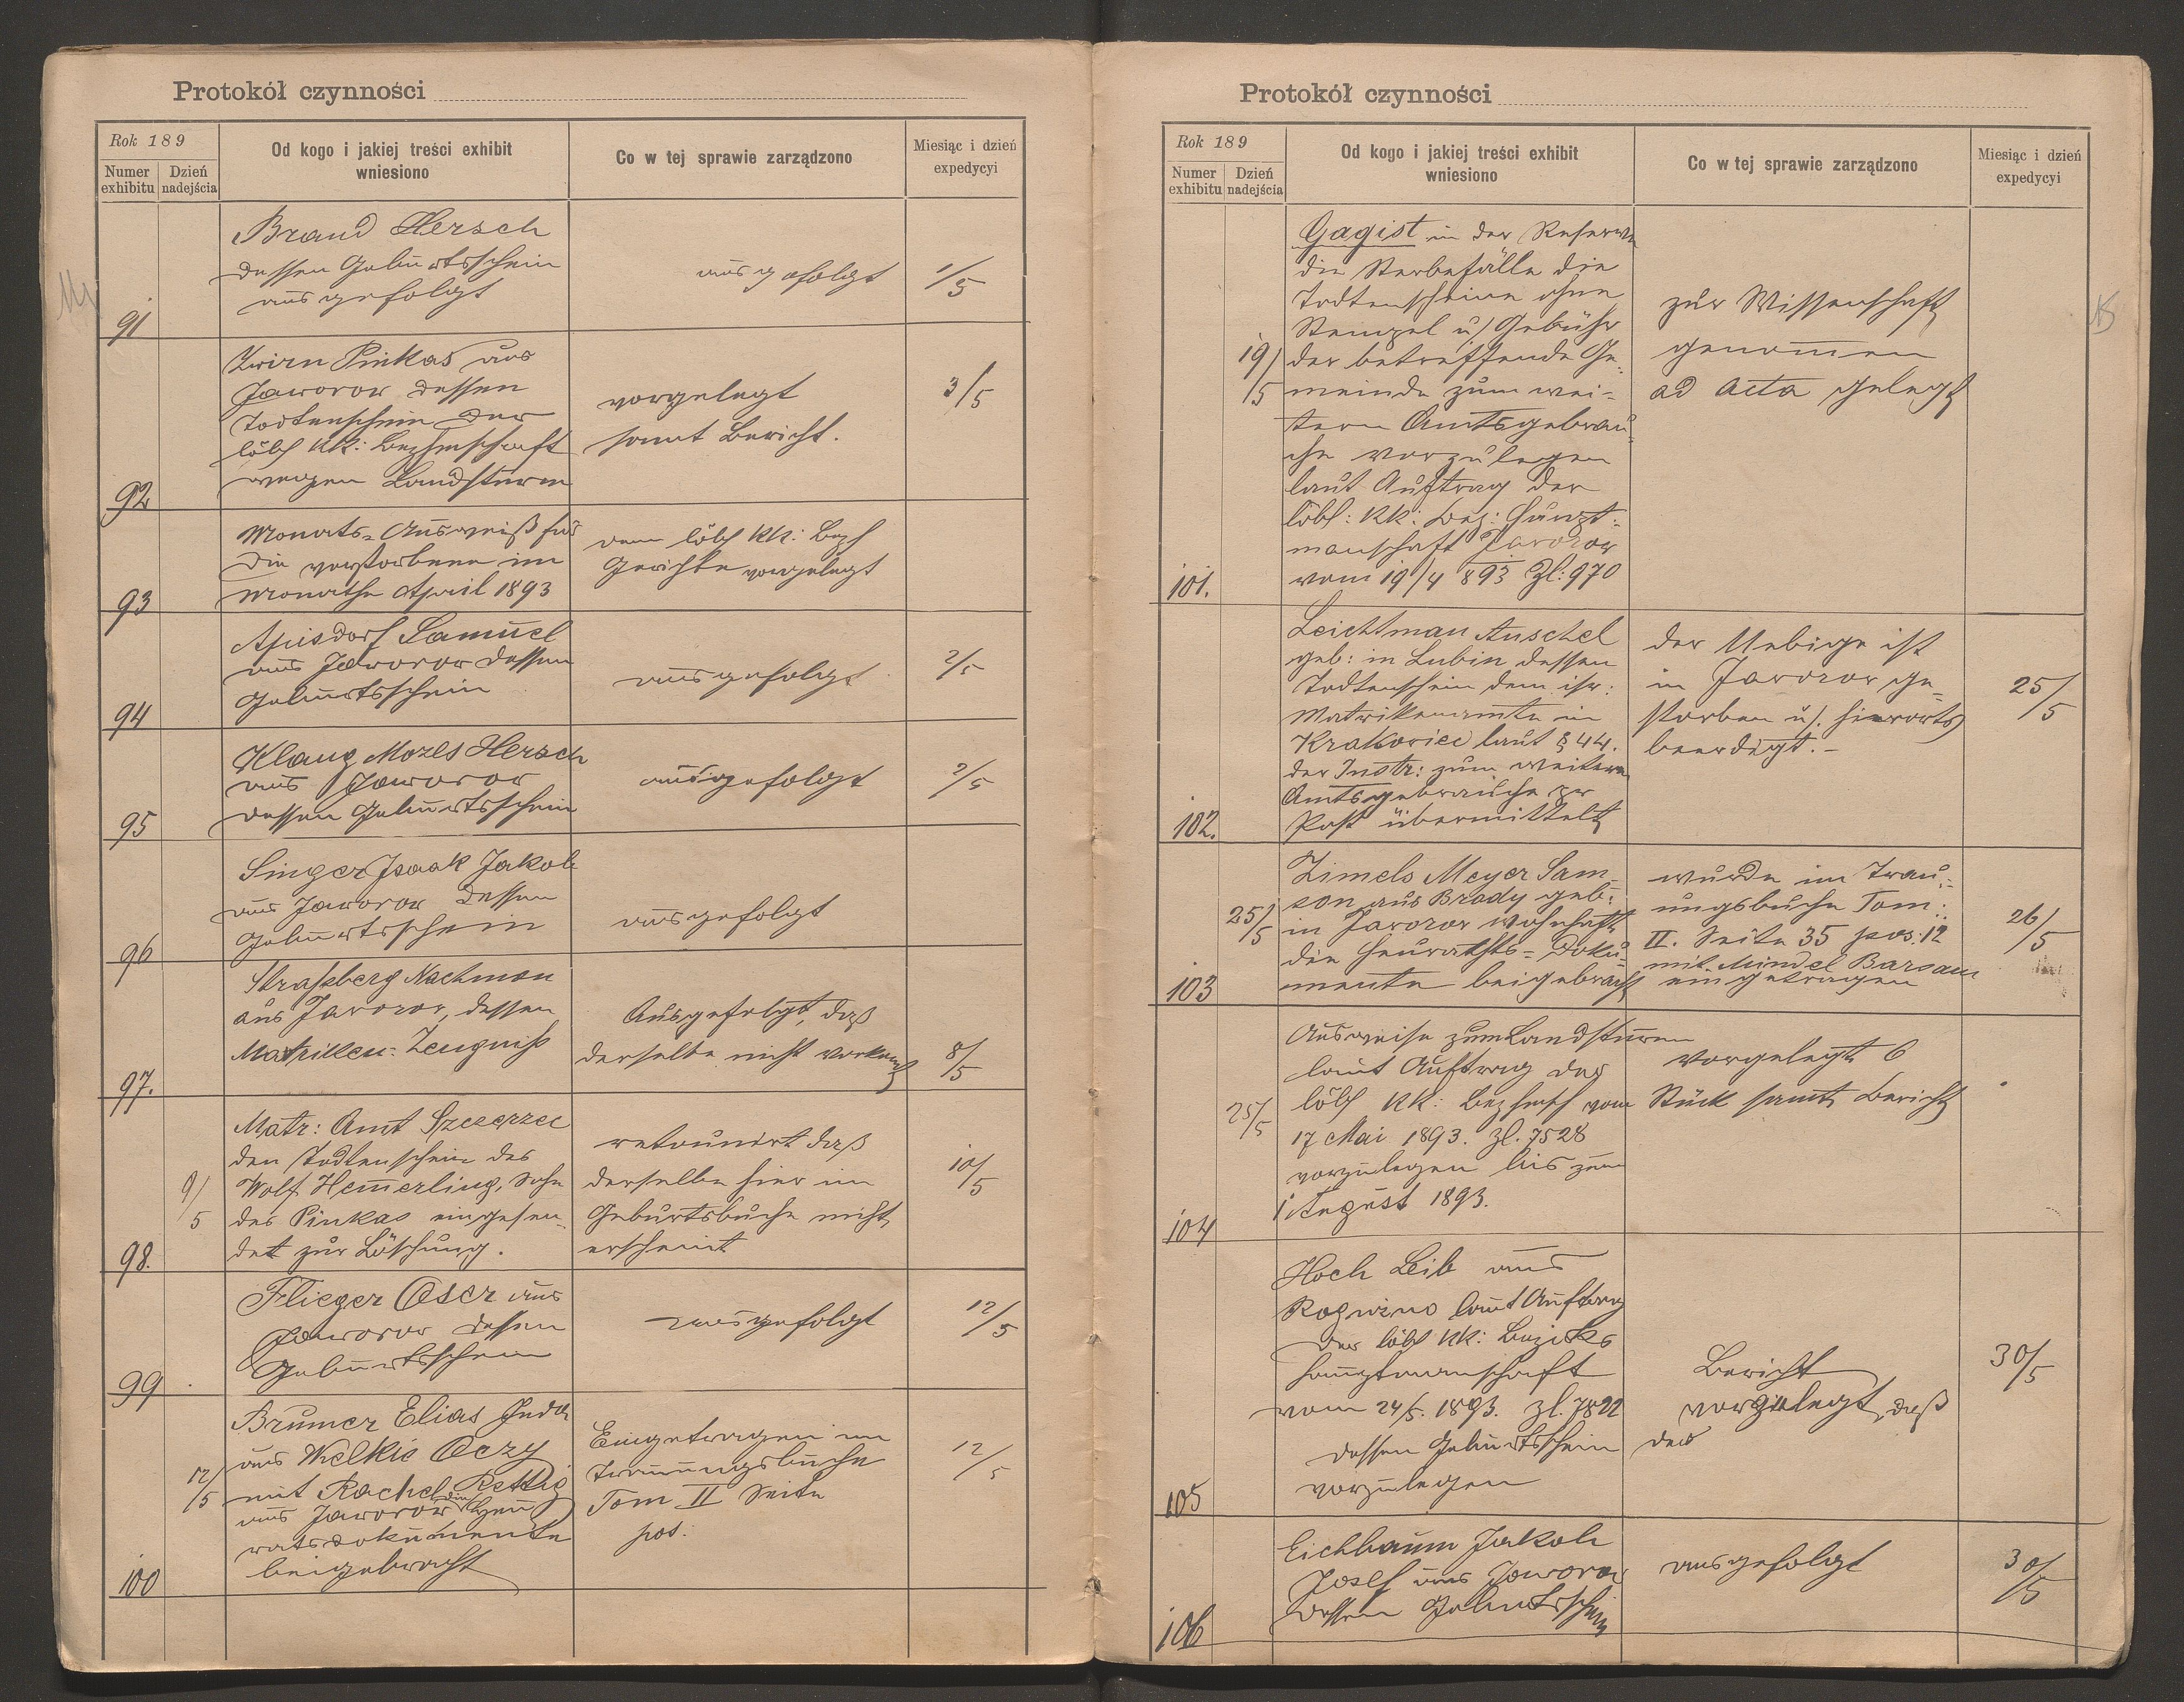 Protokół czynności
Rok 189
Numer exhibitu
Dzień nadejścia
Od kogo i jakiej treści exhibit wniesiono
Co w tej sprawie zarządzono
Miesiąc i dzień expedycyi
91
Brand Hersch
dessen Geburtsschein
ausgefolgt
ausgefolgt
1/5
92
Zwirn Pinkas aus
Jaworow dessen
Todtenschein der
löbl kk: Bezhmschaft
wegen Landsturm
vorgelegt
sammt Bericht.
3/5
93
Monats-Ausweiß für
die verstorbene im
Monathe April 1893
dem löbl kk: Bezh
Gerichte vorgelegt
94
Samuel
aus Jaworow dessen
Geburtsschein
ausgefolgt
2/5
95
Klang Mozes Hersch
aus Jaworow
dessen Geburtsschein
ausgefolgt
2/5
96
Singer Isaak Jakob
aus Jaworow dessen
Geburtsschein
ausgefolgt
97.
Straßberg Nachman
aus Jaworow, dessen
Matriken-Zeugniß
Ausgefolgt, daß
derselbe nicht vorkomt
8/5
98.
9/5
Matr: Amt Szczerzec
den Todtenschein des
Wolf Hem̄erling, Sohn
des Pinkas eingesen-
det zur Löschung.
retournirt daß
derselbe hier im
Geburtsbuche nicht
erscheint
10/5
99
Flieger Oser aus
Jaworow dessen
Geburtsschein
ausgefolgt
12/5
100
12/5
Brumer Elias Juda
aus Wielkie Oczy
mit Rachel Rettig
aus Jaworow die Heu
ratsdokumente
beigebracht
Eingetragen im
Trauungsbuche
Tom II Seite
pos:
12/5
Protokół czynności
Rok 189
Numer exhibitu
Dzień nadejścia
Od kogo i jakiej treści exhibit wniesiono
Co w tej sprawie zarządzono
Miesiąc i dzień expedycyi
101.
19/5
Gagist in der Reserve
die Sterbefälle die
Todtenscheine ohne
Stempel u) Gebühr
der betreffende Ge-
meinde zum wei-
tern Amtsgebrau-
che vorzulegen
laut Auftrag der
löbl: kk: Bez: Haupt-
manschaft Javorow
vom 19/4 893 Zl: 970
zur Wissenschaft
genom̄en
ad Acta gelegt
102.
Leichtman Anschel
geb: in Lubin dessen
Todtenschein dem isr:
Matrikenamte in
Krakoviec laut § 44.
der Instr: zum weitern
Amtsgebrauche per
Post übermittelt
der Uebige ist
in Javorow ge-
storben u). hierorts
beerdigt.-
25/5
103
25/5
Zimels Meyer Sam-
son aus Brady geb:
in Javorow wohnhaft
die Heuraths-Doku-
mente beigebracht
wurde im Trau-
ungsbuche Tom:
II. Seite 35 pos: 12
mit Mindel Barsam
eingetragen
26/5
104
25/5
Ausweise zum Landsturm
laut Auftrag der
löbl kk: Bezhmsch vom
17 Mai 1893. Zl. 7528
vorzulegen bis zum
1 August 1893.
vorgelegt 6
Stück samt Bericht
105
Hoch Leib aus
Rogwino laut Auftrag
der löbl kk: Bezirks
hauptmanschaft
vom 24/5. 1893. Zl. 7822
dessen Geburtsschein
vorzulegen
Bericht
vorgelegt, daß
der
30/5
106
Eichbaum Jakob
Josef aus Jaworow
dessen Geburtsschein
ausgefolgt
30/5